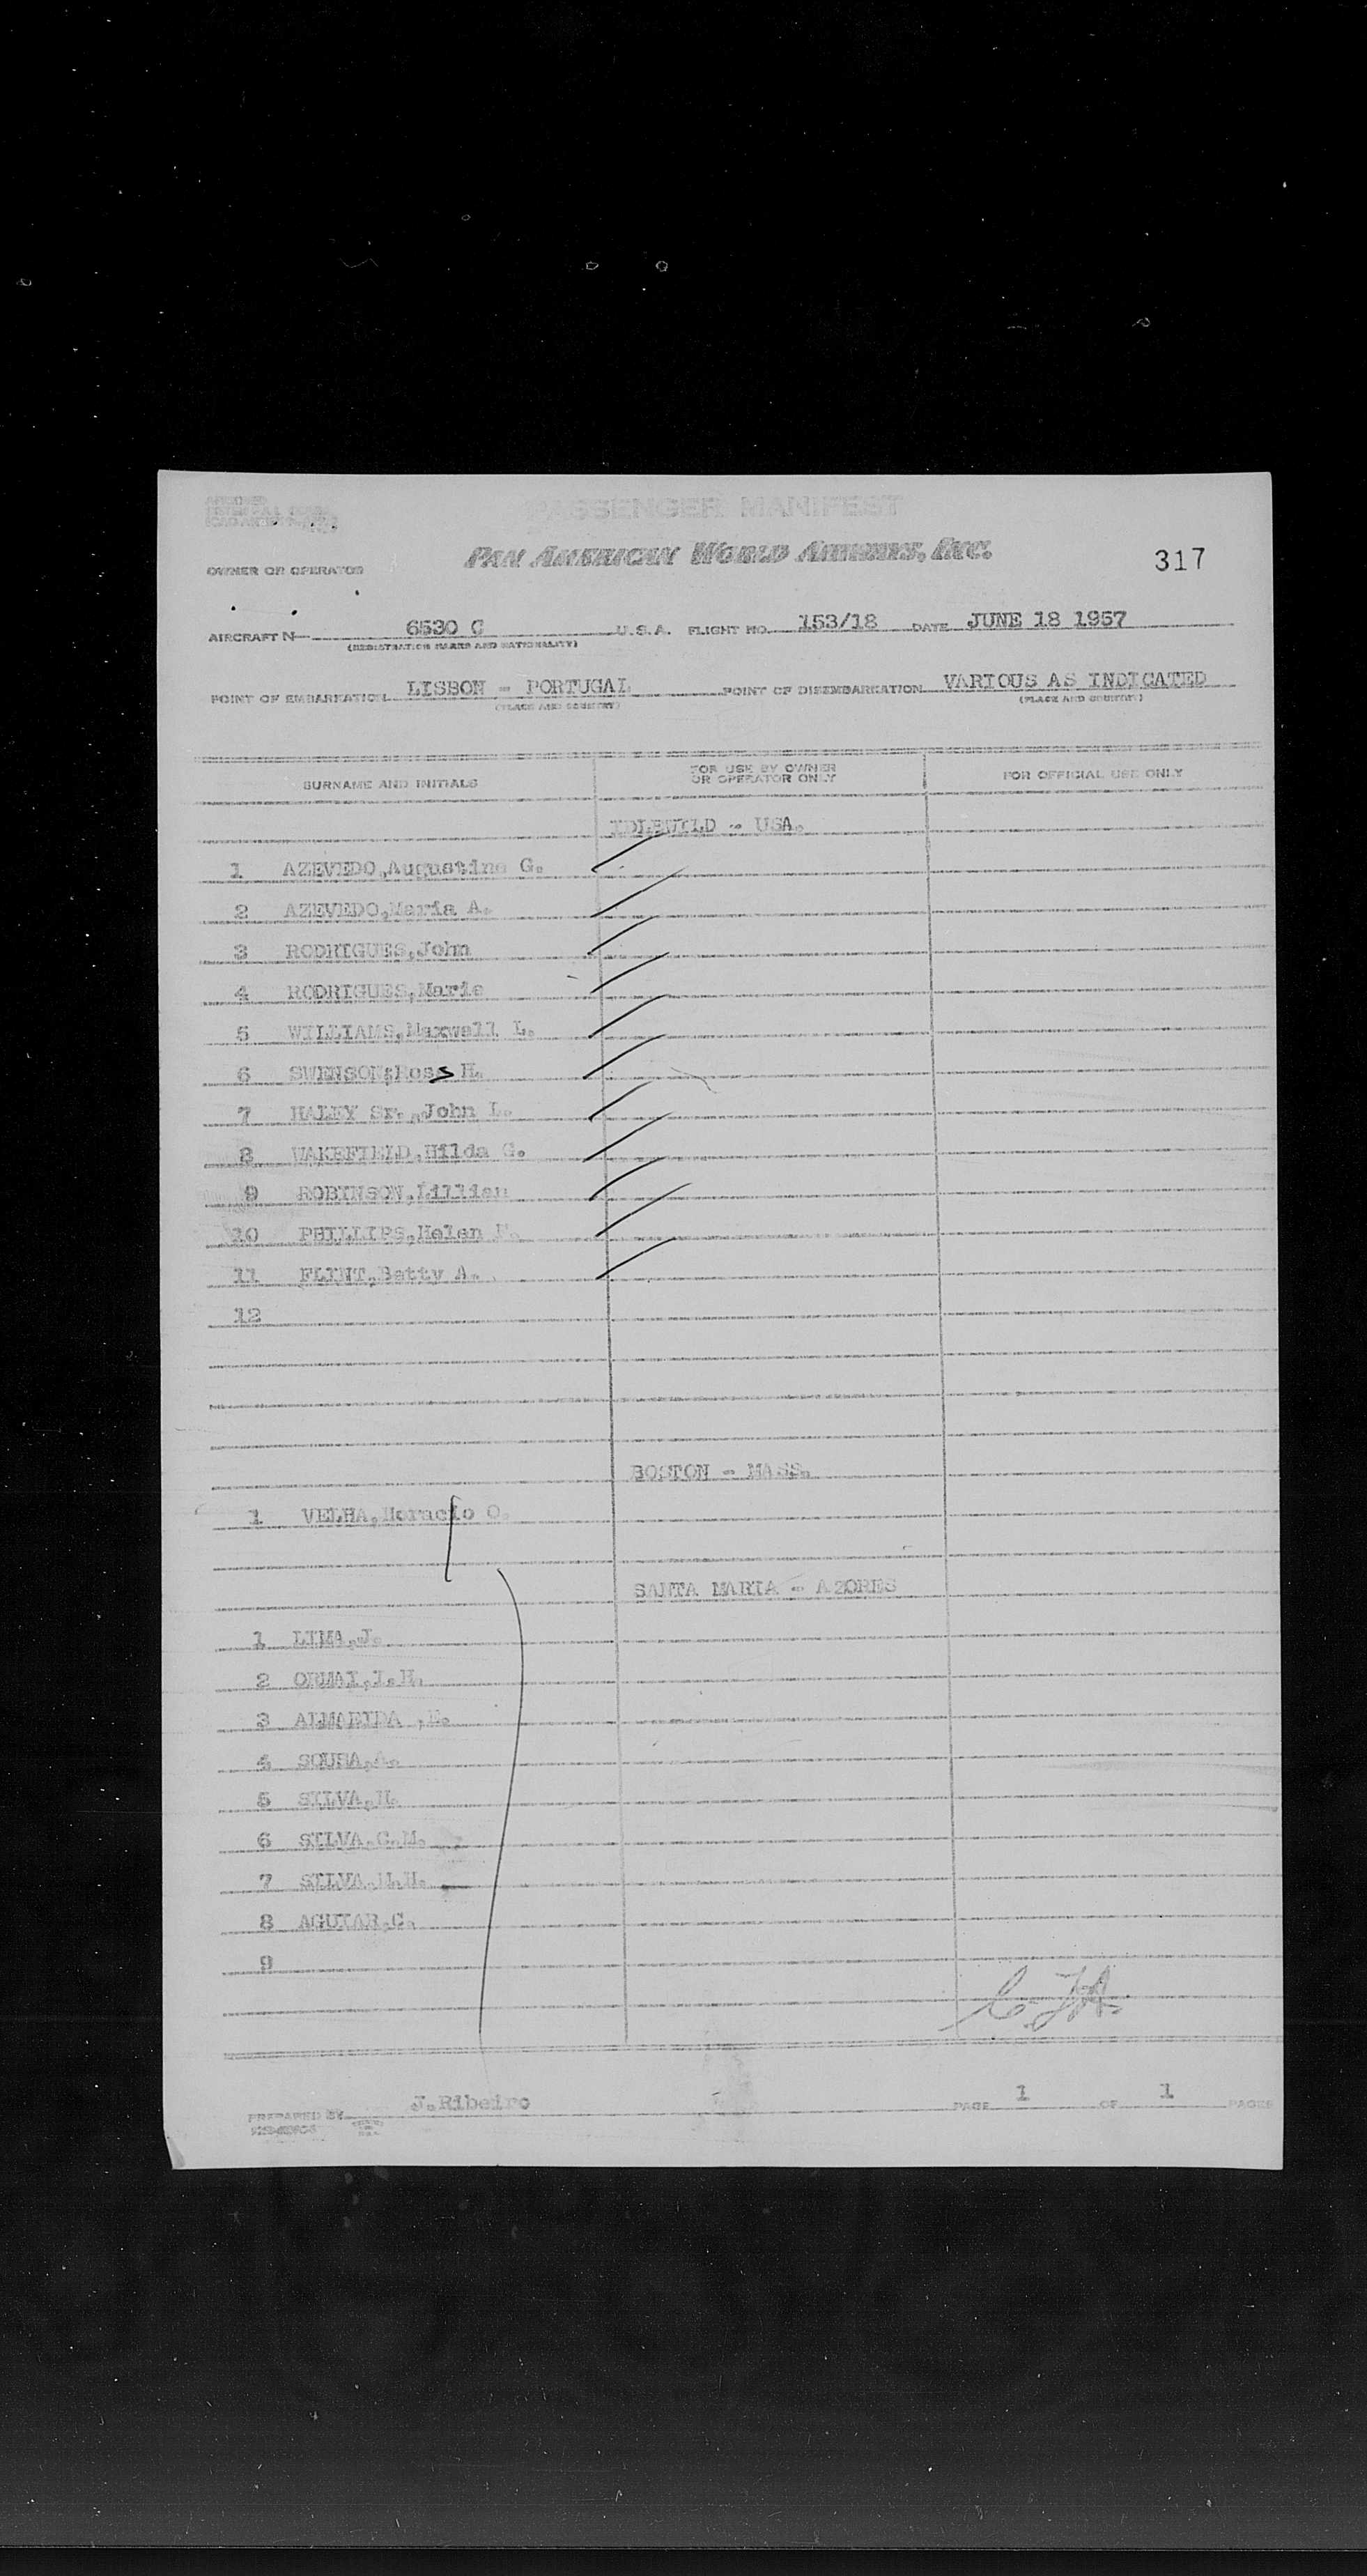 PASSENGER MANIFEST
PAN AMERICAN WORLD AIRWAYS, INC.
317
OWNER OR OPERATOR
AIRCRAFT N 6530 C U.S.A. FLIGHT NO. 153/18 DATE JUNE 18 1957
(REGISTRATION MARKS AND NATIONALITY)
POINT OF EMBARKATION LISBON - PORTUGAL POINT OF DISEMBARKATION VARIOUS AS INDICATED
(PLACE AND COUNTRY) (PLACE AND COUNTRY)
SURNAME AND INITIALS FOR USE BY OWNER OR OPERATOR ONLY FOR OFFICIAL USE ONLY
IDLEWILD - USA.
1 AZEVEDO,Augustine G.
2 AZEVEDO,Maria A.
3 RODRIGUES,John
4 RODRIGUES,Marie
5 WILLIAMS,Maxwell L.
6 SWENSON,Ross H.
7 HALEY Sr.,John L.
8 WAKEFIELD,Hilda G.
9 ROBINSON,Lillian
10 PHILLIPS,Helen
11 FLINT,Betty A.
12
BOSTON - MASS.
1 VELHA,Horacio O.
SANTA MARIA - AZORES
1 LIMA,J.
2 ORMAI,I.H.
3 ALMAEIDA ,E.
4 SOUSA,A.
5 SILVA,H.
6 SILVA,C.M.
7 SILVA,M.H.
8 AGUIAR,C.
9
PREPARED BY J.Ribeiro PAGE 1 OF 1 PAGES